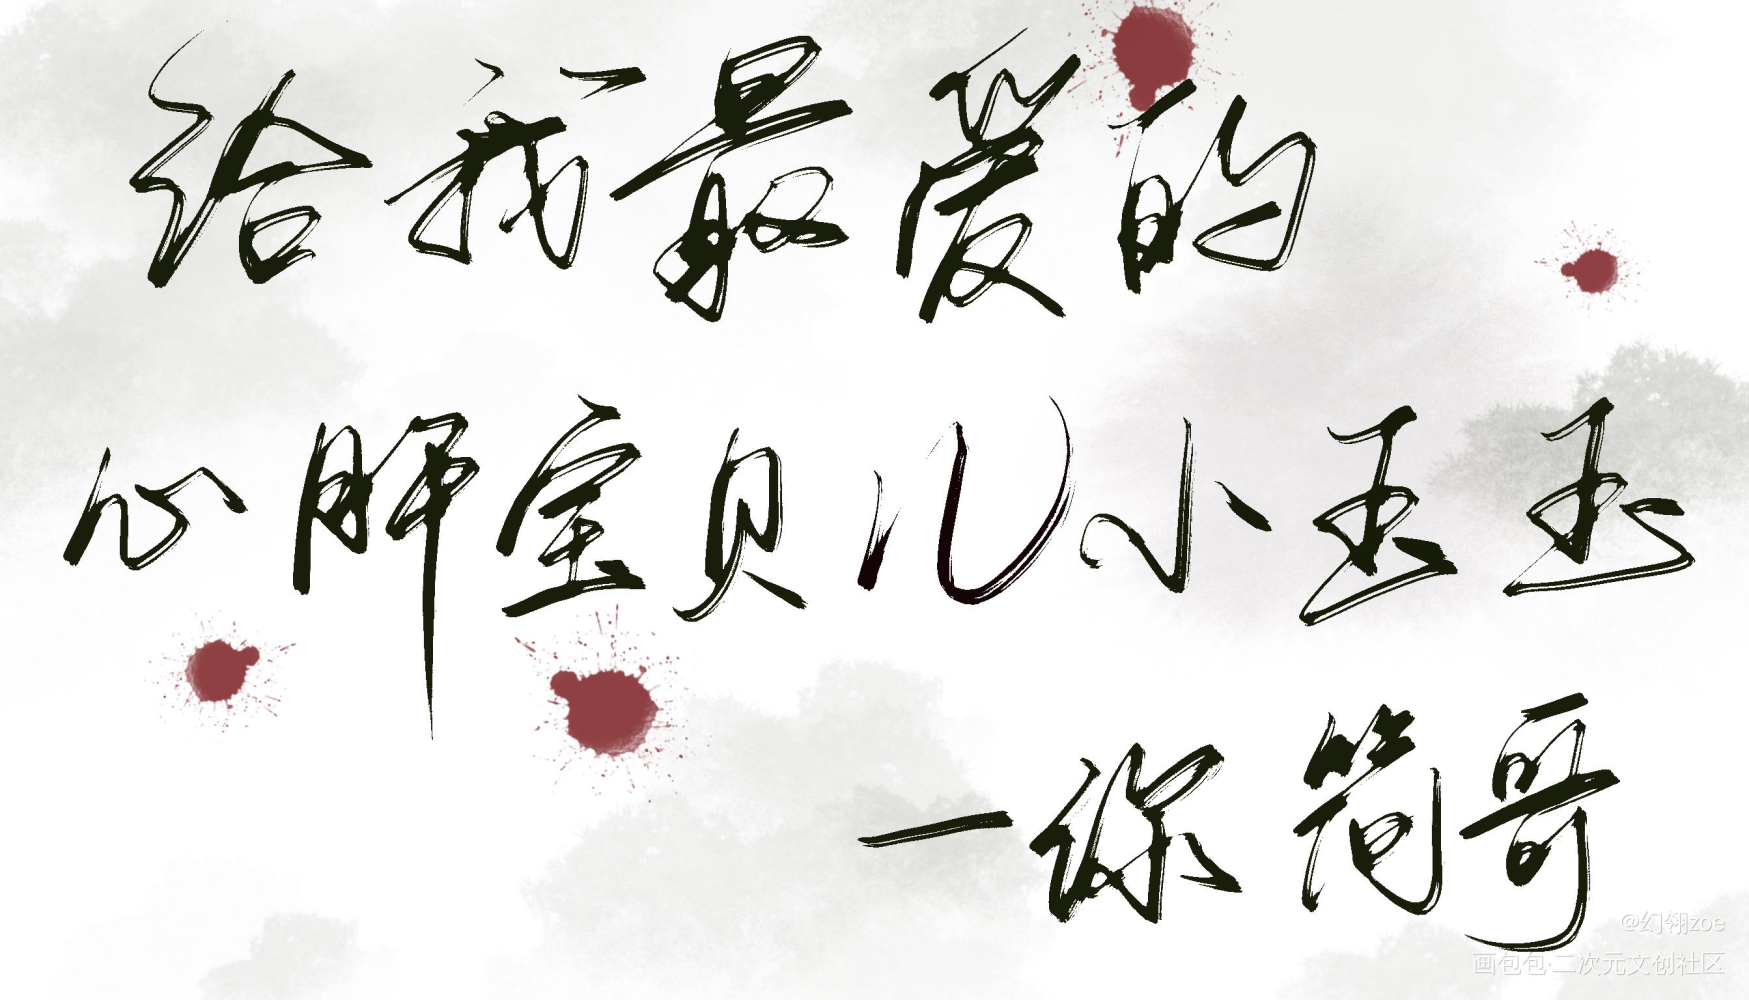 给我最爱的
心肝宝贝儿小玉玉
一你简哥
@幻翎zoe
画包包·二次元文创社区